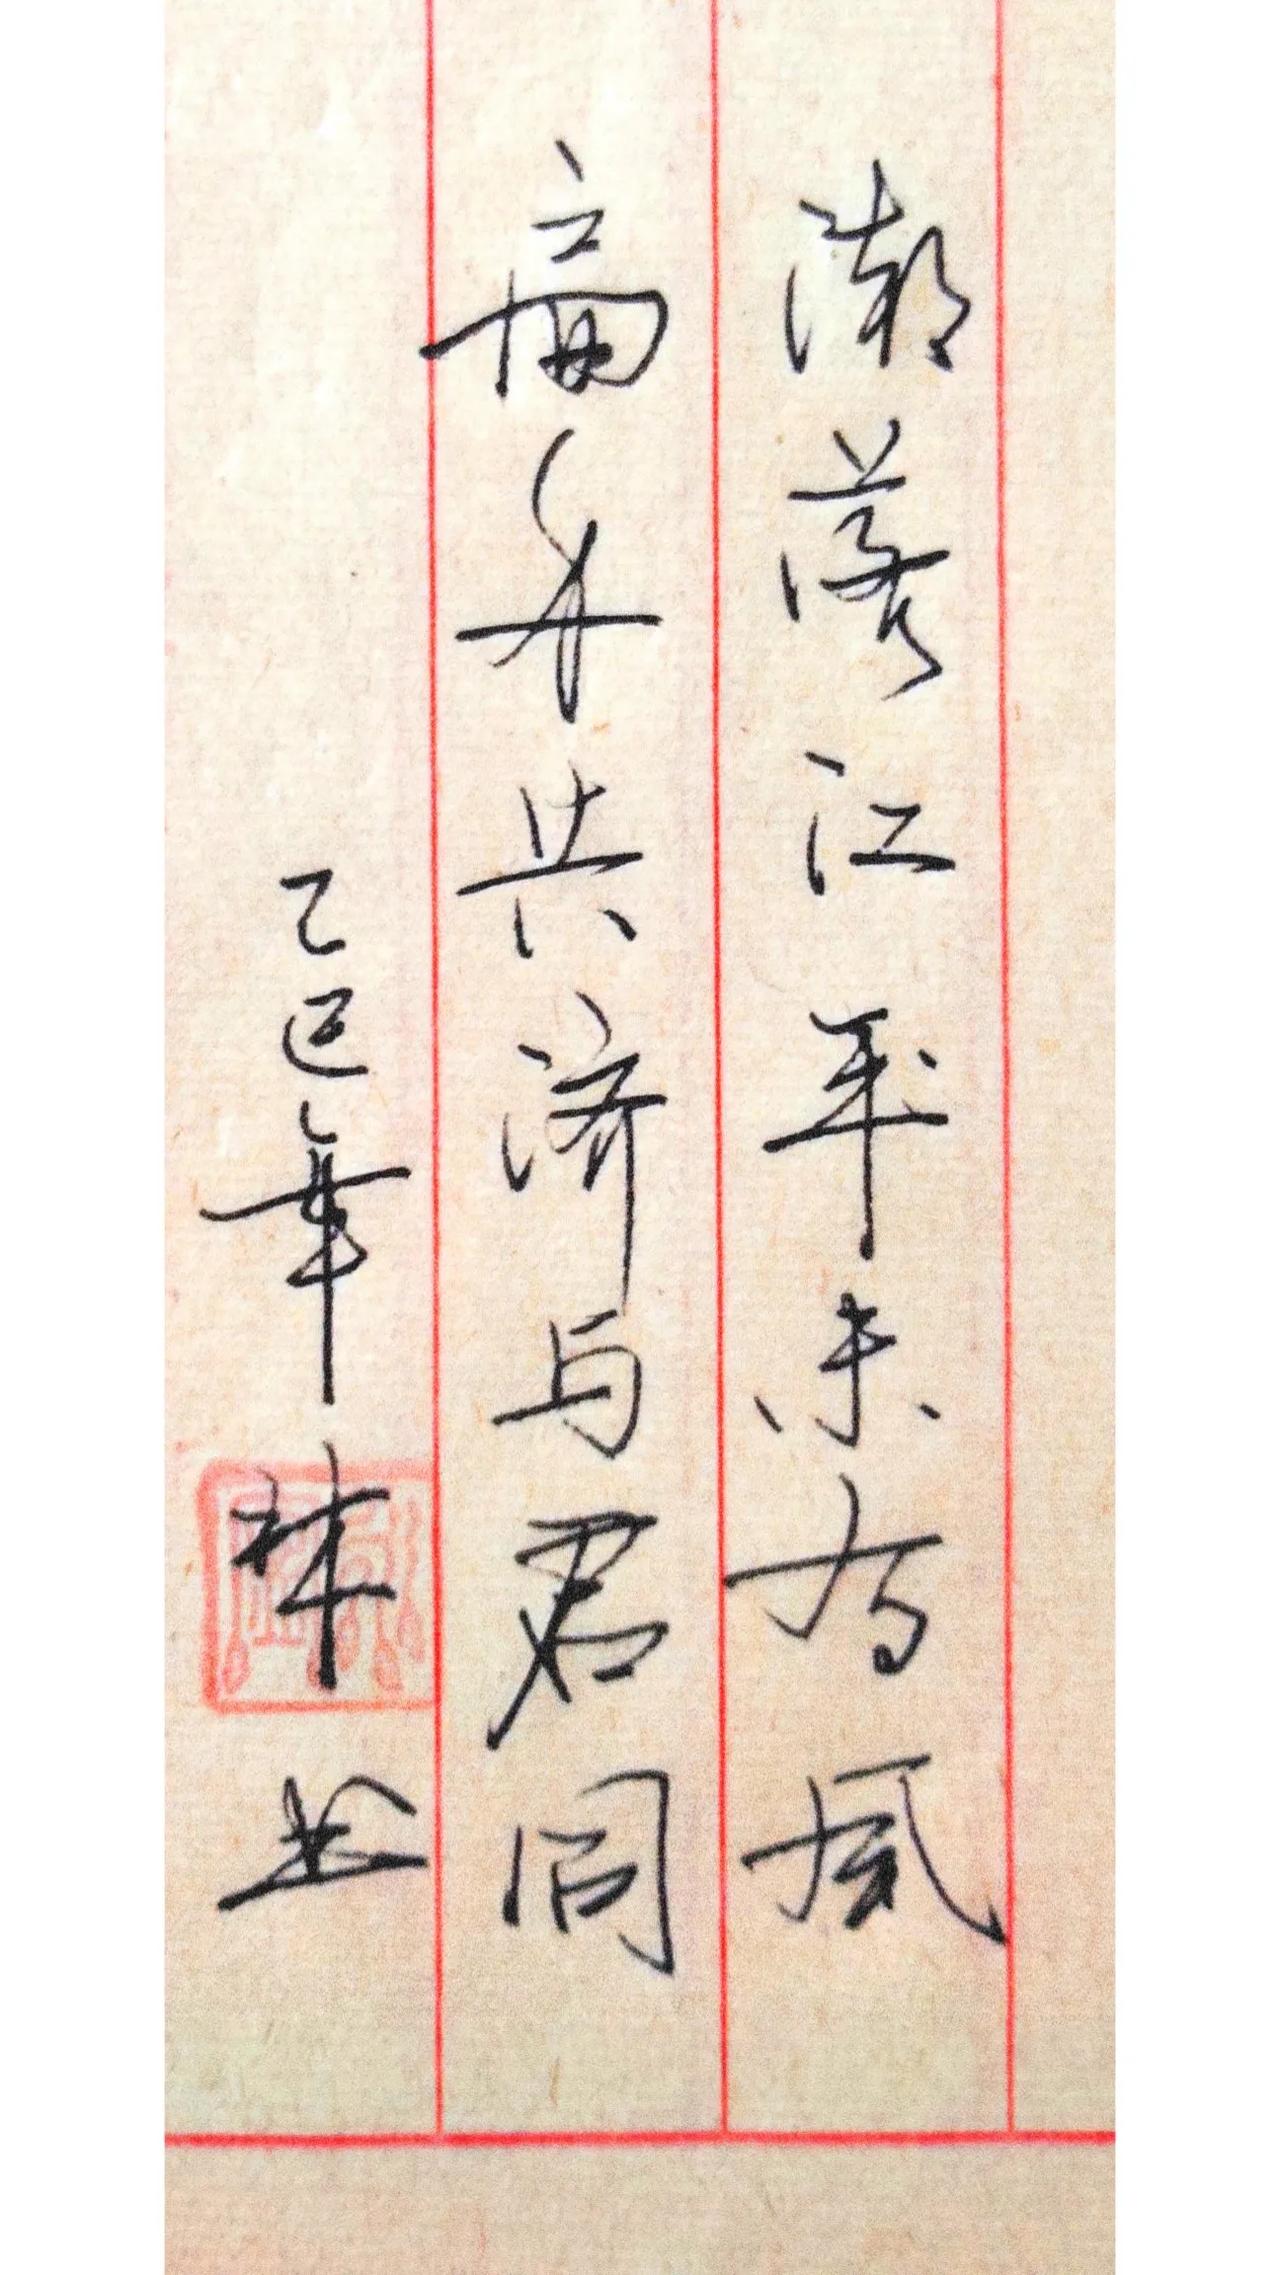 潮落江平未有風
扁舟共济与君同
乙巳華林書